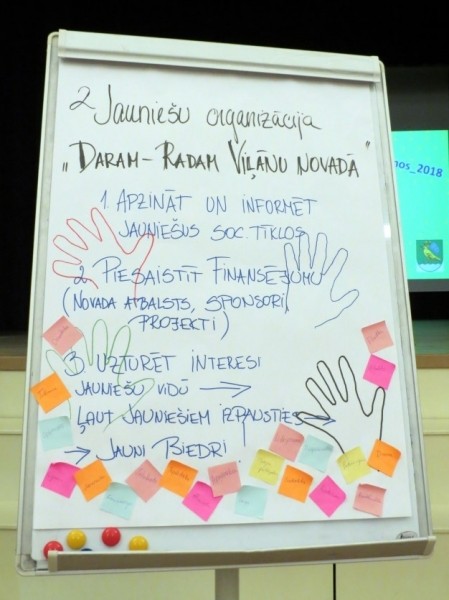 2 Jauniešu organizācija
„DARAM - RADAM VIĻĀNU NOVADĀ"
1. APZINĀT UN INFORMĒT
JAUNIEŠUS SOC. TĪKLOS
2. PIESAISTĪT FINANSĒJUMU
(NOVADA ATBALSTS, SPONSORI,
PROJEKTI)
3. UZTURĒT INTERESI
JAUNIEŠU VIDŪ →
ĻAUT JAUNIEŠIEM IZPAUSTIES →
→ JAUNI BIEDRI
os_2018